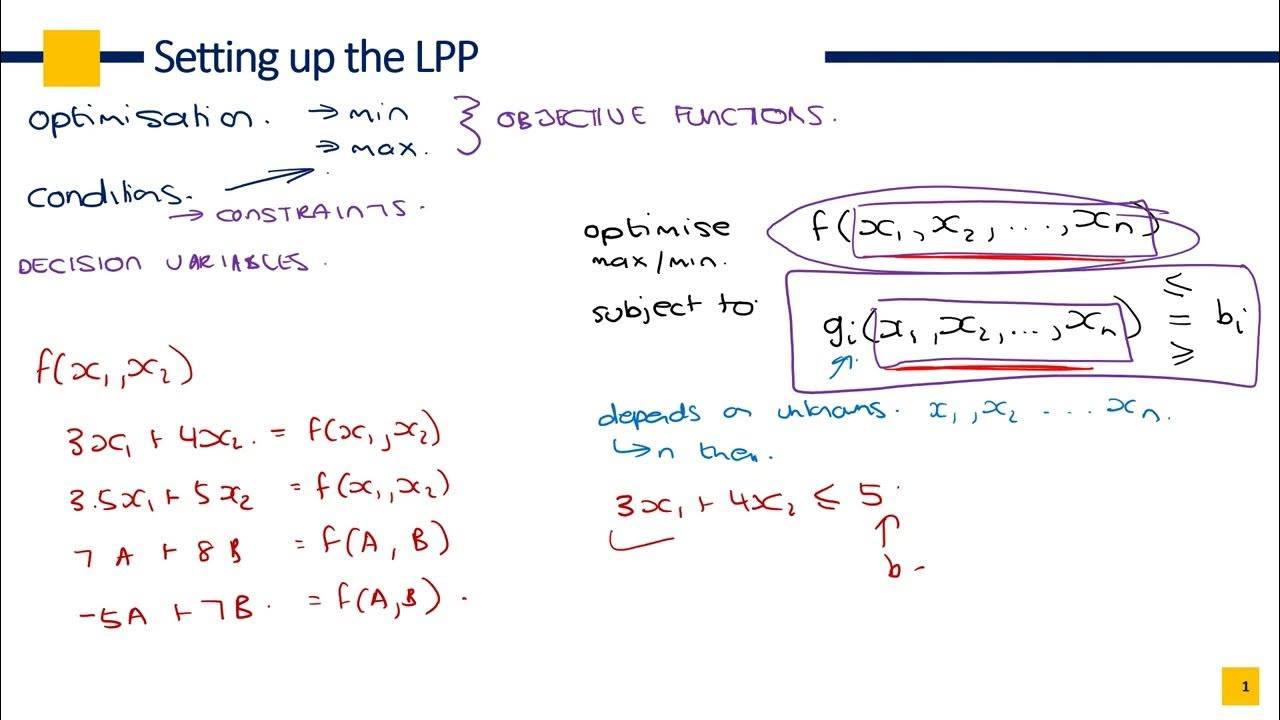 Setting up the LPP
optimisation. → min
→ max.
} OBJECTIVE FUNCTIONS.
conditions.
→ CONSTRAINTS.
DECISION VARIABLES.
optimise f(x₁,x₂,...,xₙ)
max/min.
subject to gᵢ(x₁,x₂,...,xₙ) ≤ = ≥ bᵢ
depends on unknowns. x₁,x₂ ... xₙ.
↳ n them.
3x₁ + 4x₂ ≤ 5
↑
b
f(x₁,x₂)
3x₁ + 4x₂. = f(x₁,x₂)
3.5x₁ + 5x₂ = f(x₁,x₂)
7A + 8B = f(A,B)
-5A + 7B. = f(A,B).
1